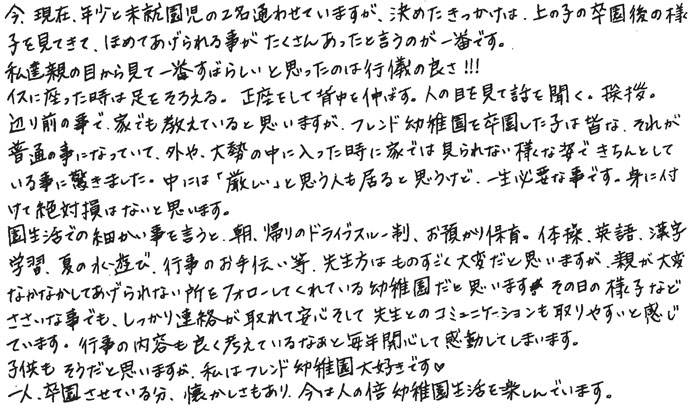 今、現在、年少と未就園児の2名通わせていますが、決めたきっかけは、上の子の卒園後の様
子を見てきて、ほめてあげられる事がたくさんあったと言うのが一番です。
私達親の目から見て一番すばらしいと思ったのは行儀の良さ!!!
イスに座った時は足をそろえる。正座をして背中を伸ばす。人の目を見て話を聞く。挨拶。
辺り前の事で、家でも教えていると思いますが、フレンド幼稚園を卒園した子は皆な、それが
普通の事になっていて、外や、大勢の中に入った時に家では見られない様な姿できちんとして
いる事に驚きました。中には「厳しい」と思う人も居ると思うけど、一生必要な事です。身に付
けて絶対損はないと思います。
園生活での細かい事を言うと、朝、帰りのドライブスルー制、お預かり保育。体操、英語、漢字
学習、夏の水遊び、行事のお手伝い等、先生方はものすごく大変だと思いますが、親が大変
なかなかしてあげられない所をフォローしてくれている幼稚園だと思います。その日の様子など
ささいな事でも、しっかり連絡が取れて安心そして先生とのコミュニケーションも取りやすいと感じ
ています。行事の内容も良く考えているなあと毎年関心して感動してしまいます。
子供もそうだと思いますが、私はフレンド幼稚園大好きです♥
一人、卒園させている分、懐かしさもあり、今は人の倍幼稚園生活を楽しんでいます。